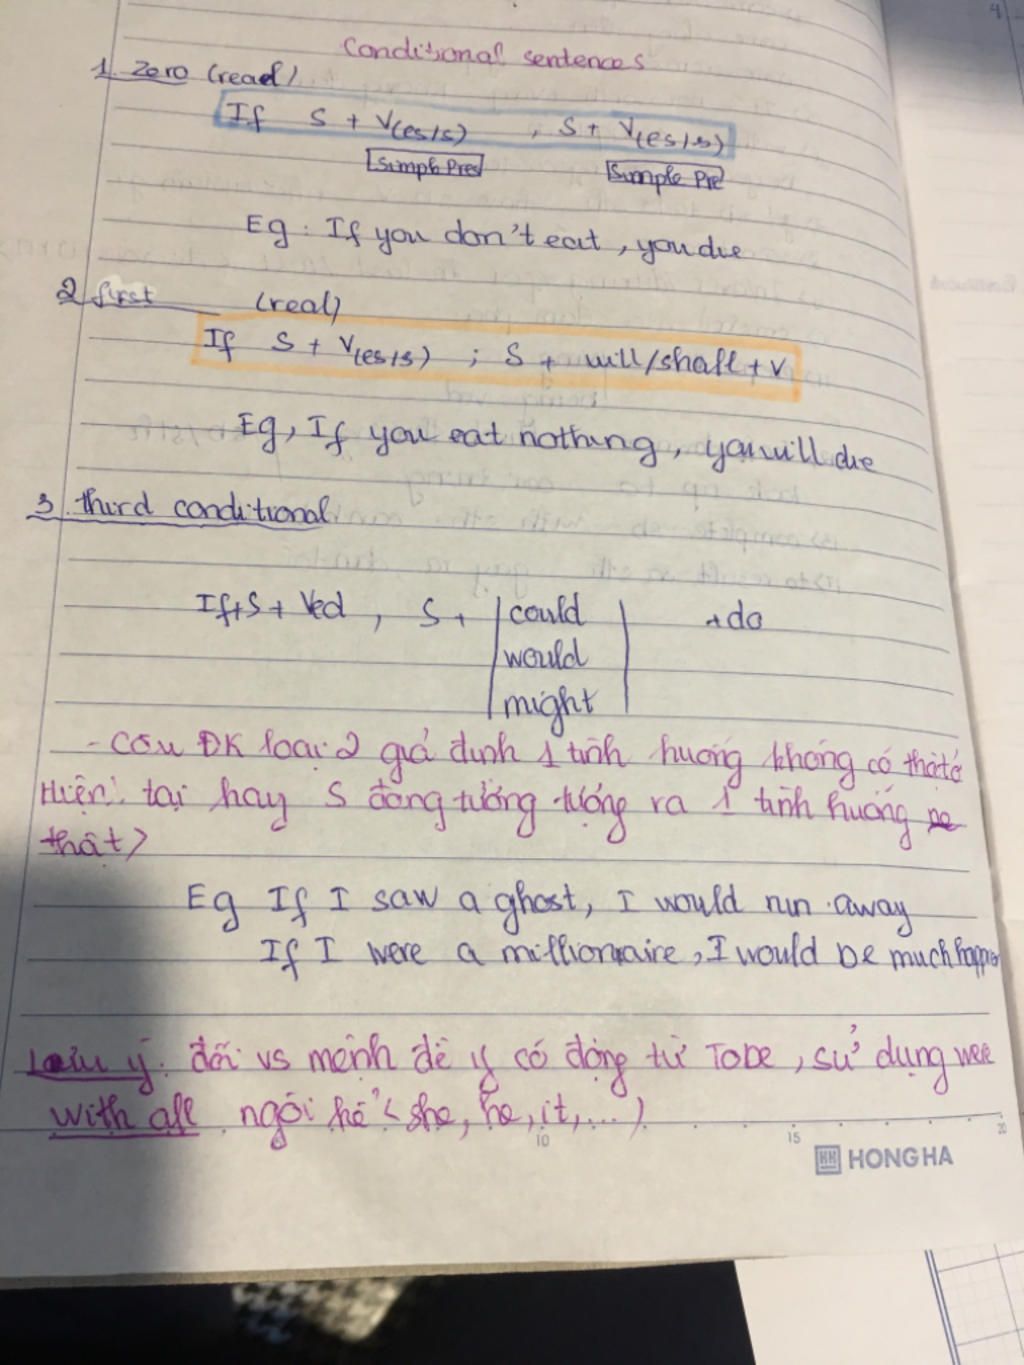 Conditional sentences
1 Zero (read)
If S + V(es/s) , S + V(es/s)
Simple Pres Simple Pre
Eg : If you don't eat, you die
2 first (real)
If S + V(es/s) ; S + will/shall + V
Eg, If you eat nothing, you will die
3 third conditional
If+S + Ved , S + could + do
would
might
- Câu ĐK loại 2 giả định 1 tình huống không có thật ở
Hiện tại hay S đang tưởng tượng ra 1 tình huống
thật>
Eg If I saw a ghost, I would run away
If I were a millionaire, I would be much
Lưu ý : đối vs mệnh đề if có động từ Tobe, sử dụng were
with all ngôi kể < she, he, it, ...)
10 15 20
HONG HA